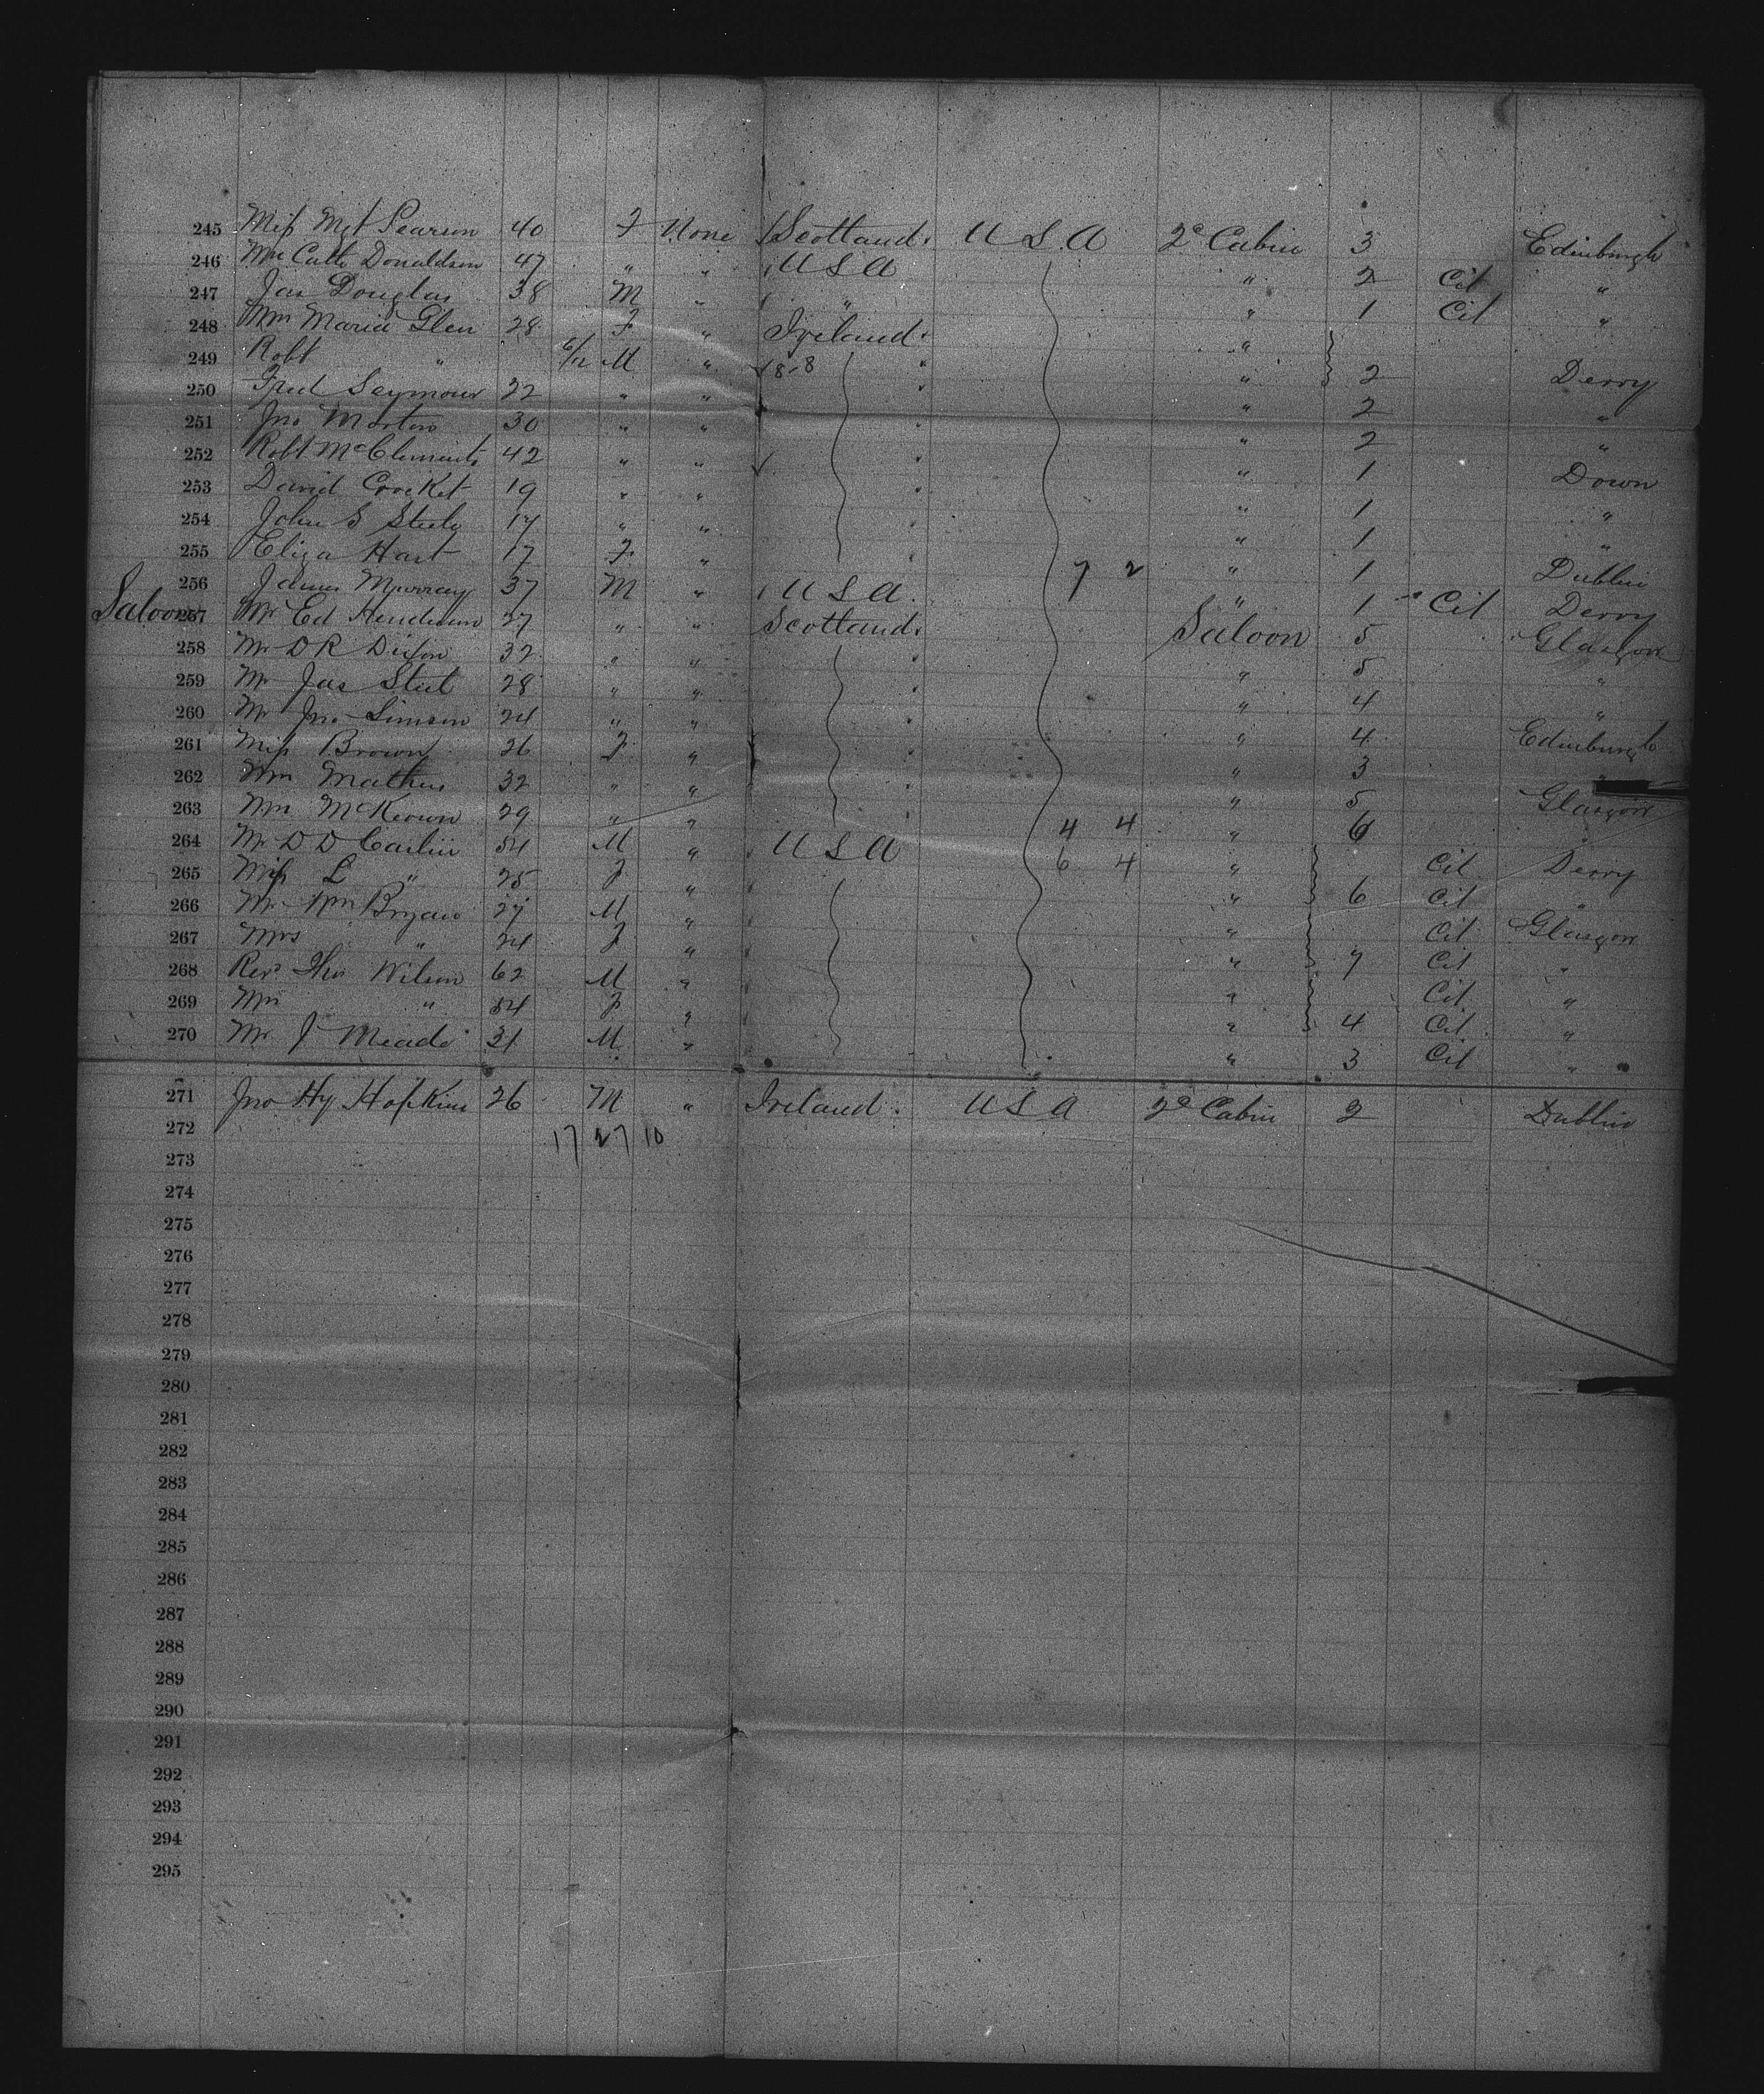 245 Miss Mgt Pearson 40 F None Scotland. U S A 2d Cabin 3 Edinburgh
246 Mrs Cath Donaldson 47 " " U S A " 2 Cit "
247 Jas Douglas 38 M " " " 1 Cit "
248 Mrs Maria Glen 28 F " Ireland. "
249 Robt " 6/12 M " 8-8 " " 2 Derry
250 Fred Seymour 22 " " " " 2 "
251 Jno Morton 30 " " " " 2 "
252 Robt McClements 42 " " " " 1 Down
253 David Crocket 19 " " " " 1 "
254 John S Steele 17 " " " " 1 "
255 Eliza Hart 17 F " " 7 2 " 1 Dublin
256 James Murray 37 M " U S A. " 1 Cit Derry
Saloon 257 Mr Ed Henderson 27 " " Scotland. Saloon 5 Glasgow
258 Mr D R Dixon 32 " " " " 5 "
259 Mr Jas Steel 28 " " " " 4 "
260 Mr Jno Simson 24 " " " " 4 Edinburgh
261 Miss Brown 26 F " " " 3 "
262 Mrs Mathers 32 " " " " 5 Glasgow
263 Mrs McKeown 29 " " " 4 4 " 6 "
264 Mr D D Carlin 54 M " U S A 6 4 " Cit Derry
265 Miss L " 25 F " " 6 Cit "
266 Mr Wm Bryan 27 M " " Cit Glasgow
267 Mrs " 24 F " " 7 Cit "
268 Revd Thos Wilson 62 M " " Cit "
269 Mrs " 54 F " " 4 Cit "
270 Mr J Meade 31 M " " 3 Cit "
271 Jno Hy Hopkins 26 M " Ireland. U S A 2d Cabin 2 Dublin
272 17 27 10
273
274
275
276
277
278
279
280
281
282
283
284
285
286
287
288
289
290
291
292
293
294
295